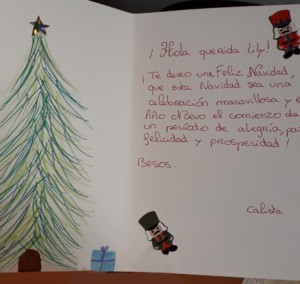 ¡Hola querida Lily!
¡Te deseo una Feliz Navidad,
que esta Navidad sea una
celebración maravillosa y e
Año Nuevo el comienzo de
un período de alegría, pa
felicidad y prosperidad!
Besos.
Calista